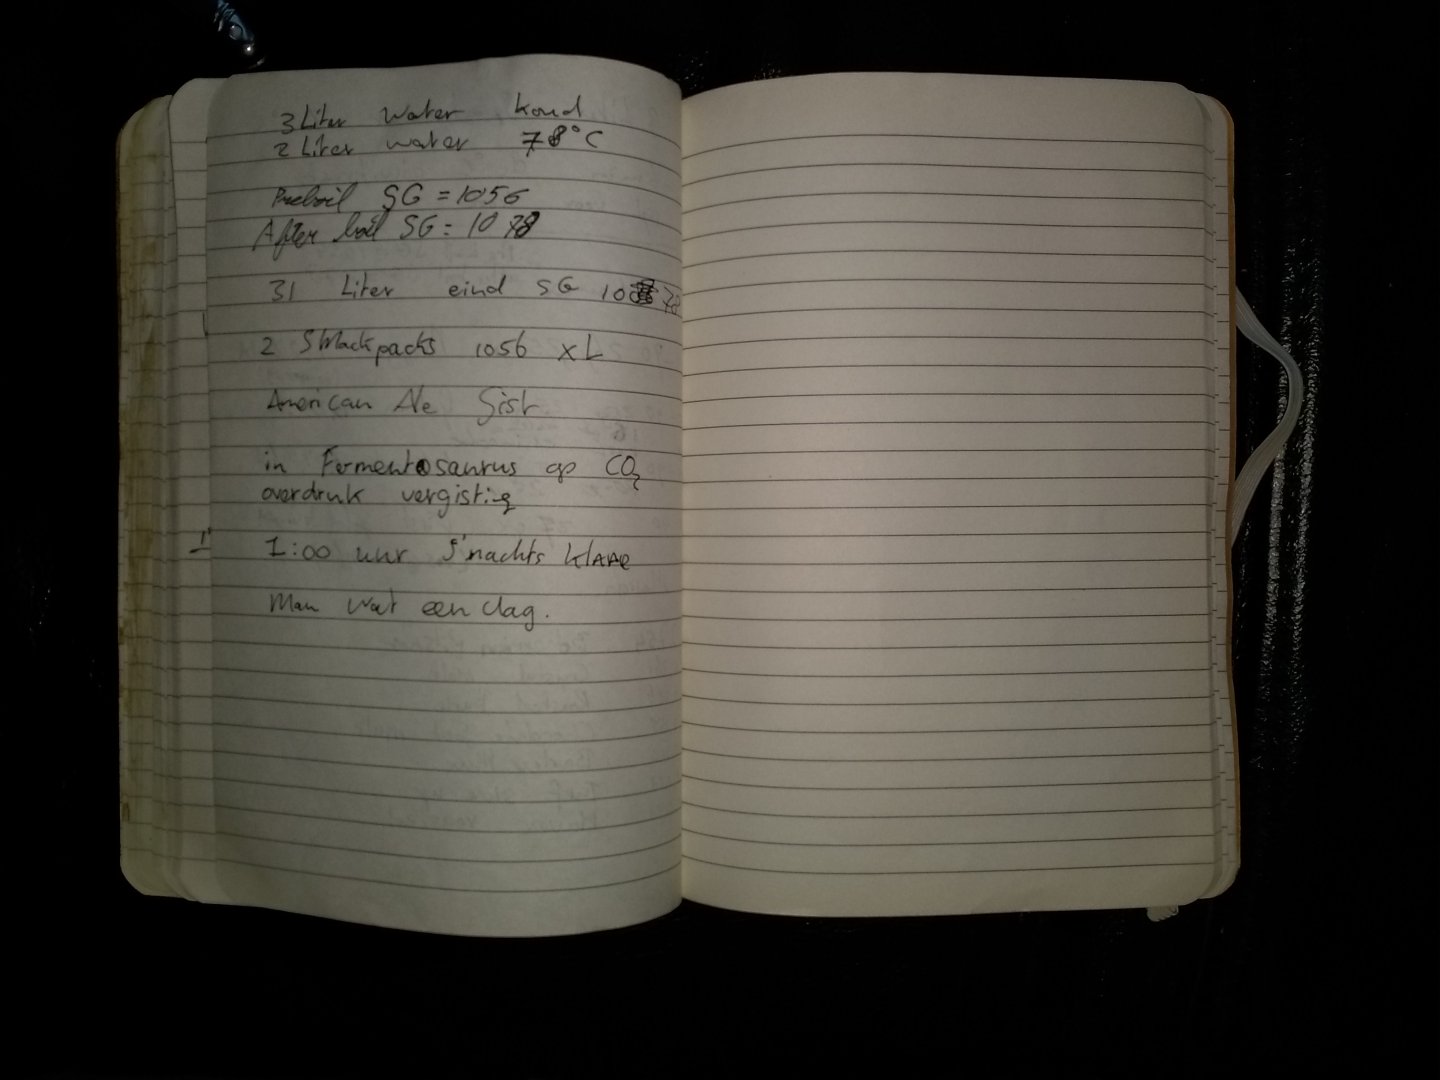 3 Liter water koud
2 Liter water 78°C
Preboil SG = 1056
After boil SG = 1078
31 Liter eind SG 1078
2 Smackpacks 1056 XL
American Ale Gist
in Fermentosaurus op CO2
overdruk vergisting
1:00 uur S'nachts KLAAR
Man wat een dag.